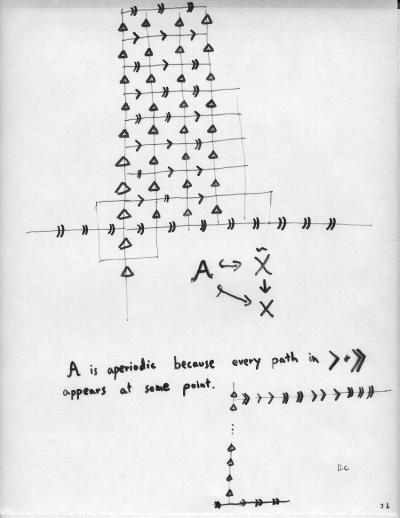 A ↔ X̃
↓
X
A is aperiodic because every path in > + ≫
appears at some point.
⋮
DC